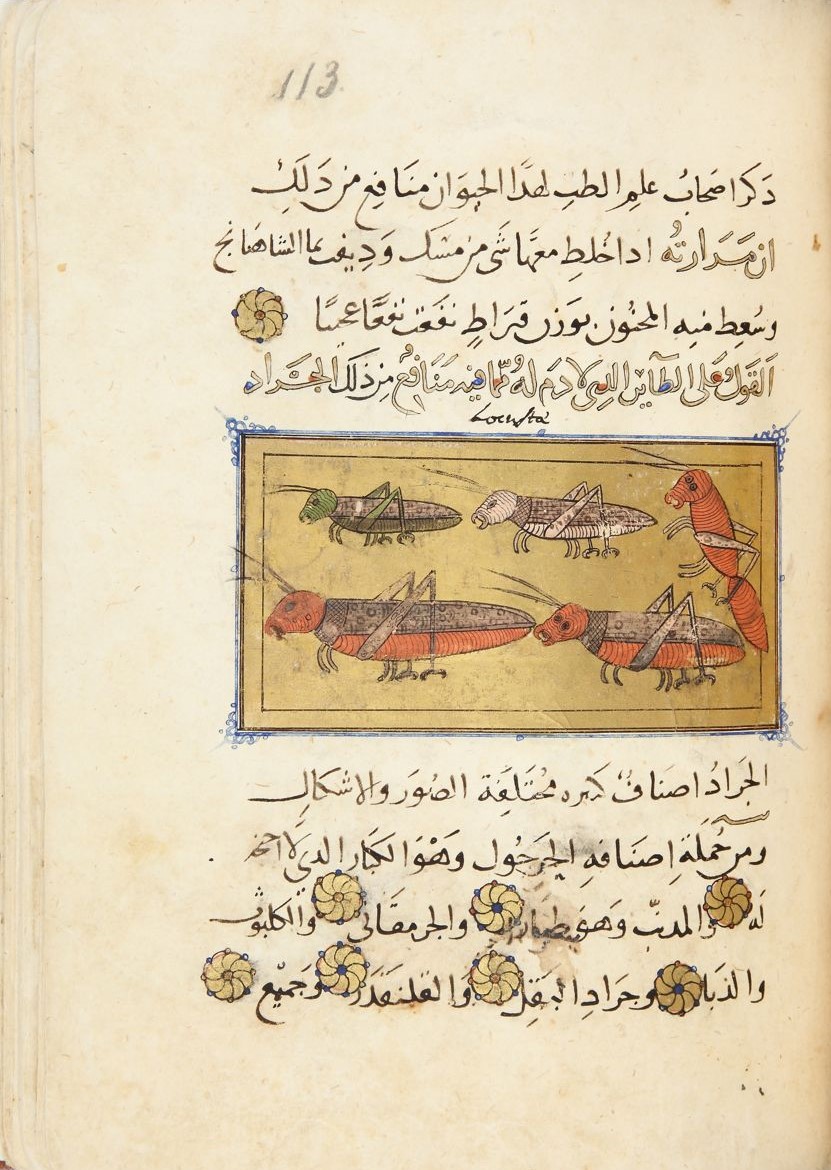 113
ذكر اصحاب علم الطب لهذا الحيوان منافع من ذلك
ان مرارته اذا خلط معها شى من مسك وديفت بما الشاهنانج
وسعط منه المجنون بوزن قيراط نفعت نفعًا عجيبًا
القول على الطاير الذى لا دم له ممّا فيه منافع من ذلك الجراد
Locusta
الجراد اصناف كثيره مختلفة الصور والاشكال
ومن جملة اصنافه الجرجول وهو الكبار الذى لا اجنحة
له والمدبّ وهو والجرمقانى
والذبا وجراد البقل وجميع